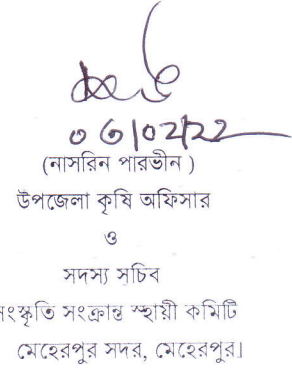 ০৩/০২/২২
(নাসরিন পারভীন )
উপজেলা কৃষি অফিসার
ও
সদস্য সচিব
সংস্কৃতি সংক্রান্ত স্থায়ী কমিটি
মেহেরপুর সদর, মেহেরপুর।